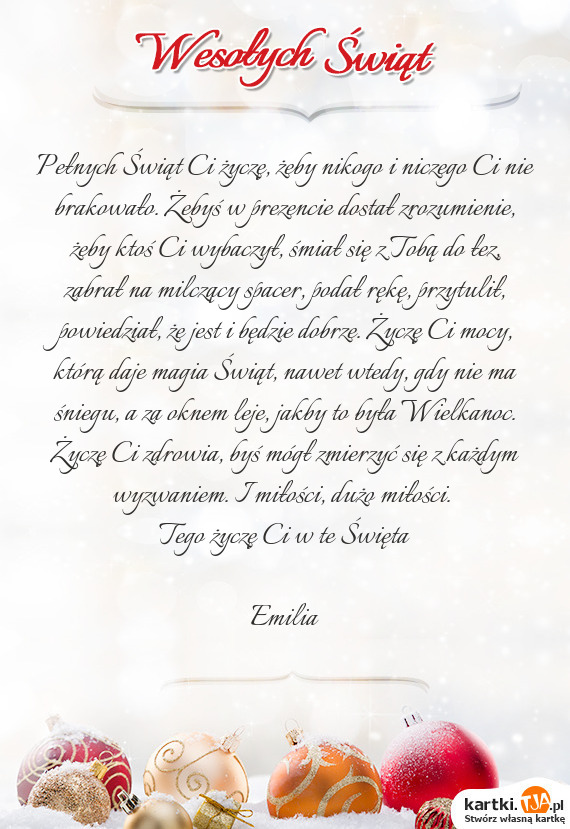 Wesołych Świąt
Pełnych Świąt Ci życzę, żeby nikogo i niczego Ci nie
brakowało. Żebyś w prezencie dostał zrozumienie,
żeby ktoś Ci wybaczył, śmiał się z Tobą do łez,
zabrał na milczący spacer, podał rękę, przytulił,
powiedział, że jest i będzie dobrze. Życzę Ci mocy,
którą daje magia Świąt, nawet wtedy, gdy nie ma
śniegu, a za oknem leje, jakby to była Wielkanoc.
Życzę Ci zdrowia, byś mógł zmierzyć się z każdym
wyzwaniem. I miłości, dużo miłości.
Tego życzę Ci w te Święta
Emilia
kartki.TJA.pl
Stwórz własną kartkę